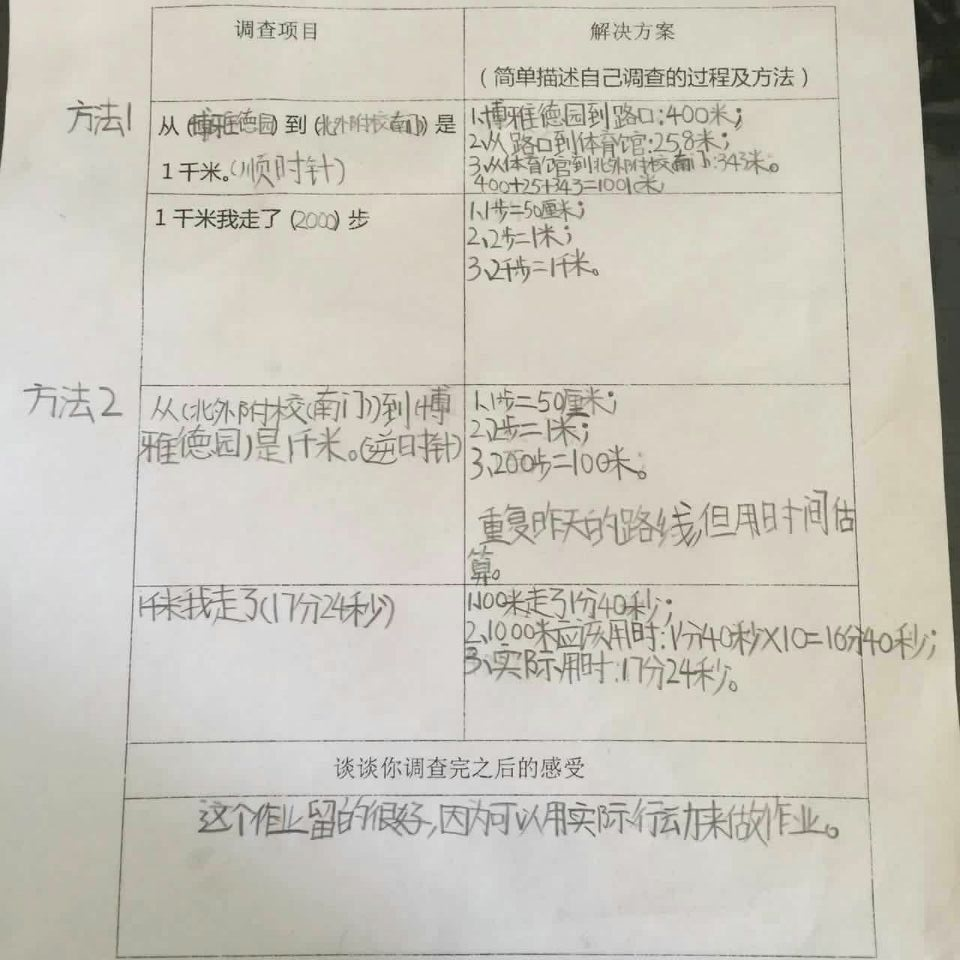 调查项目
解决方案
（简单描述自己调查的过程及方法）
方法1
从(博雅德园)到(北外附校南门)是
1千米。(顺时针)
1.博雅德园到路口:400米;
2.从路口到体育馆:258米;
3.从体育馆到北外附校南门:343米。
400+25+343=1001米
1千米我走了(2000)步
1.1步=50厘米;
2.2步=1米;
3.2千步=1千米。
方法2
从(北外附校(南门))到(博
雅德园)是1千米。(逆时针)
1.1步=50厘米;
2.2步=1米;
3.200步=100米。
重复昨天的路线,但用时间估
算。
1千米我走了(17分24秒)
1.100米走了1分40秒;
2.1000米应该用时:1分40秒×10=16分40秒;
3.实际用时:17分24秒。
谈谈你调查完之后的感受
这个作业留的很好,因为可以用实际行动来做作业。